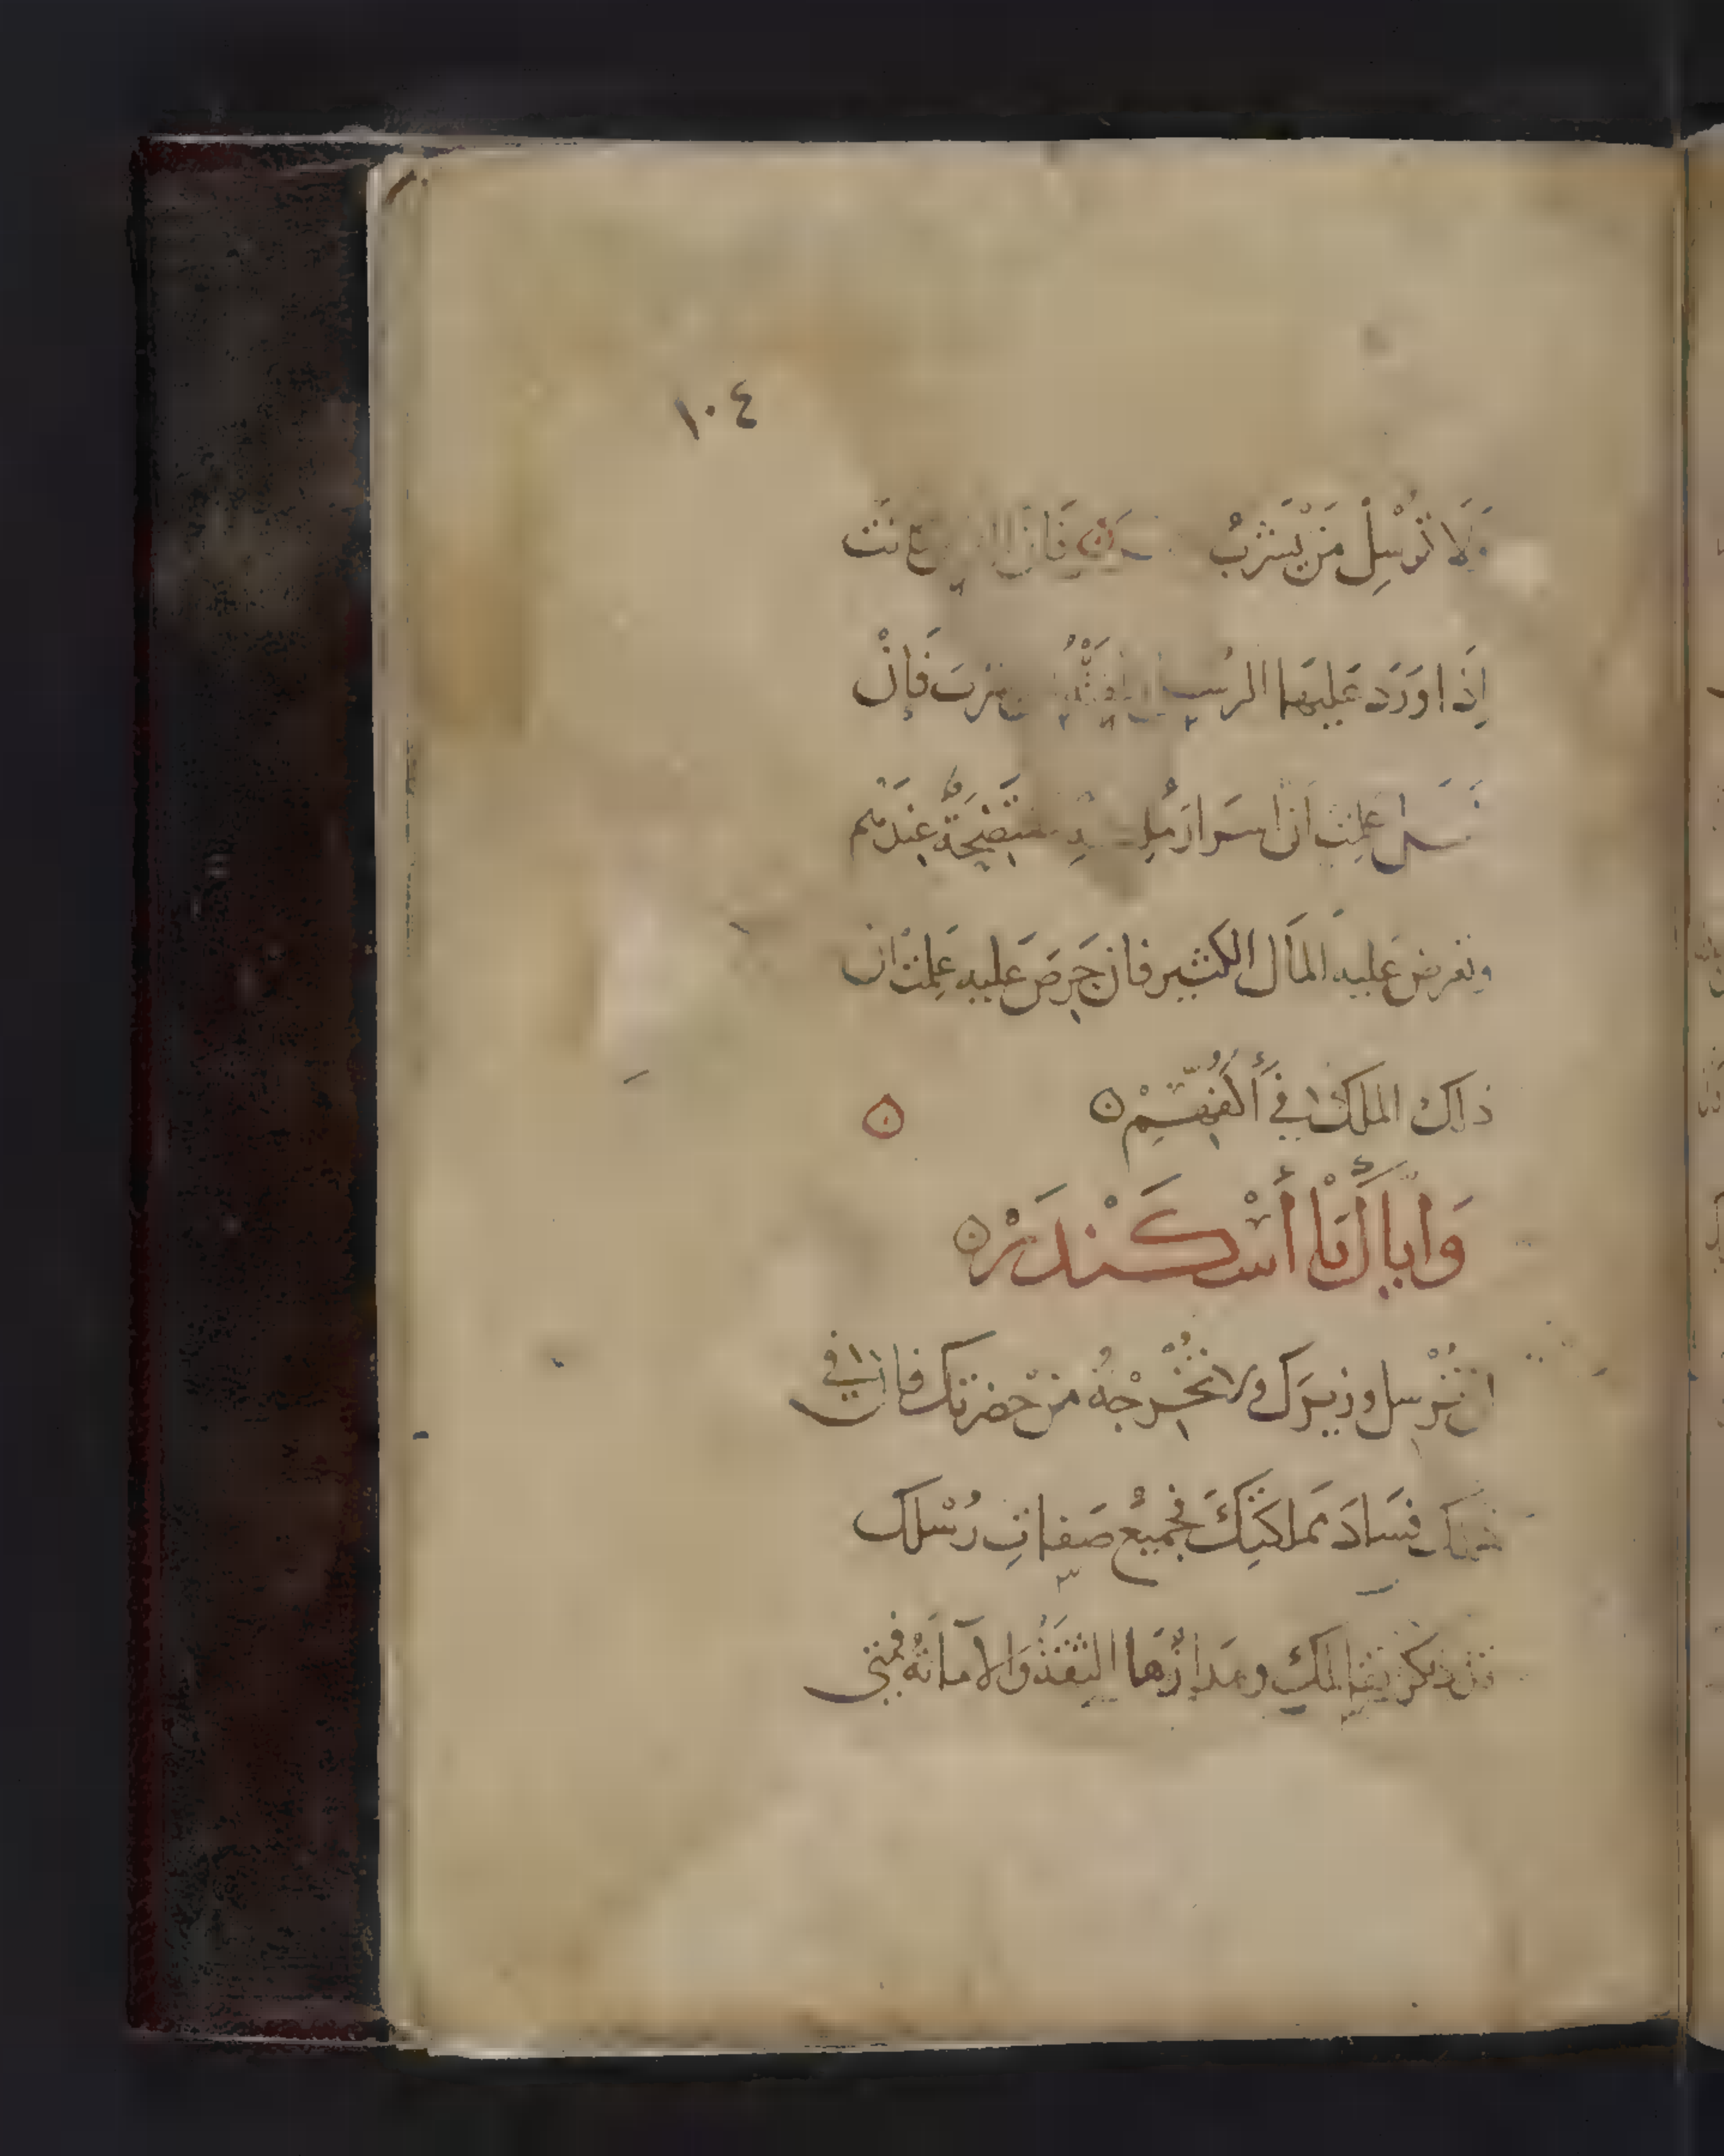 ١٠٤
وَلَا تُرْسِلْ مَنْ يَشْرَبُ فَانَّ كانت
اِذَا وَرَدَ عَلَيهَا الرسول شربَ فَإنْ
عَلِمَتْ اَنَّ اسرارَ مُفتَضِحَةٌ عِنْدَهم
وتعرض عَليه المَال الكثير فان حَرِصَ عَليه عَلِمَتْ انّ
ذلك الملكَ في أَكُفِّهِمْ
وَايَاكَ يَا أَسْكَنْدَرْ
ان تُرْسِل وزيرَك ولا تُخْرِجْهُ من حَضرتك فان في
ذلك فسَادَ مَملكَتِكَ فجميعُ صَفاتِ رُسْلك
الملك ومَدارُهَا الثِقَةُ وَالأمَانَهُ فمتى